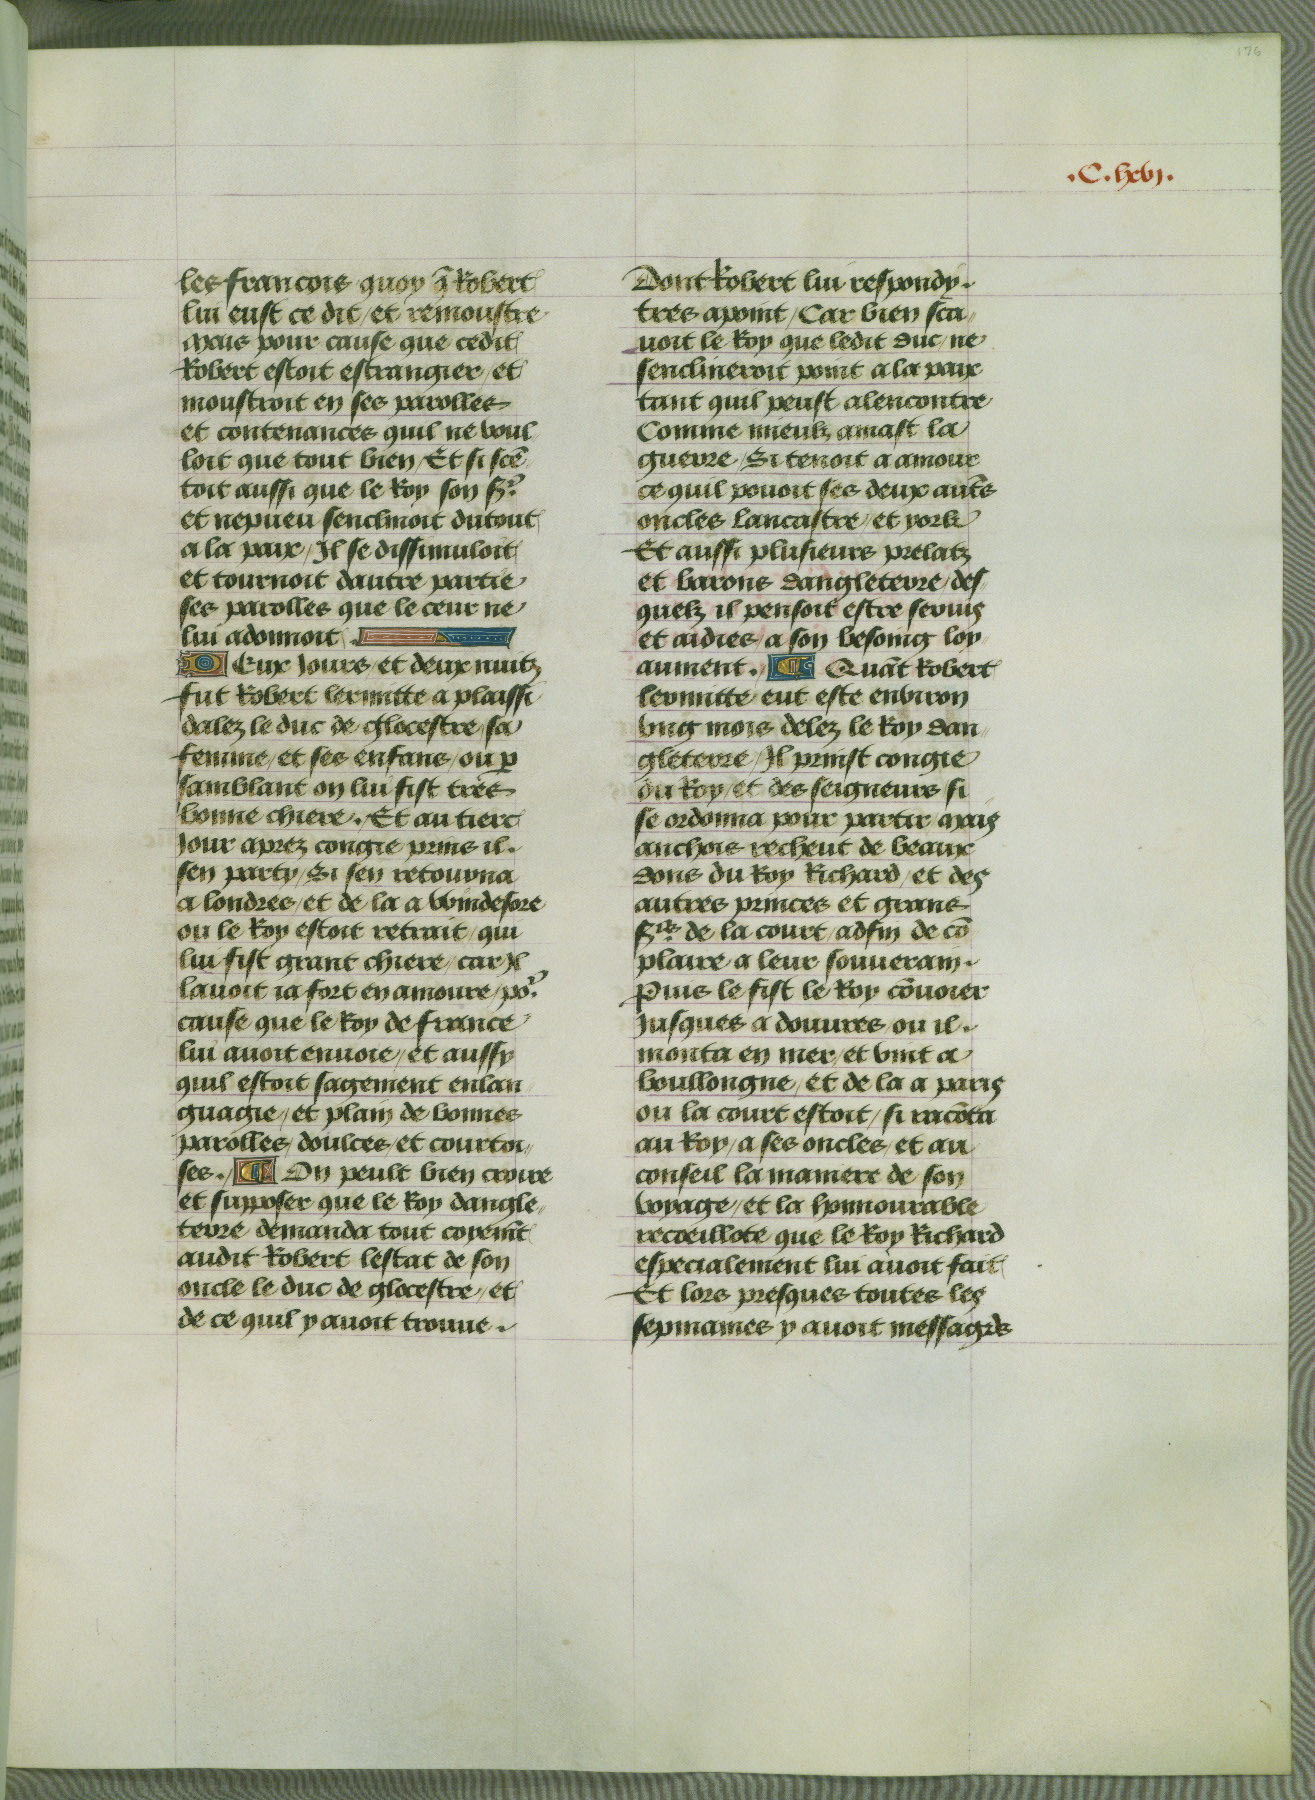 176
.C.lxvj.
les francois quoy q̃ Robert
lui eust ce dit / et remoustre
Mais pour cause que cedit
Robert estoit estrangier / et
moustroit en ses parolles
et contenances quil ne voul
loit que tout bien / Et si sce͂
toit aussi que le Roy son Sr.
et nepueu senclinoit du tout
a la paix / Il se dissimuloit
et tournoit dautre partie
ses parolles que le ceur ne
lui adonnoit .
Deux Jours / et deux nuitz
fut Robert lermitte a plaissi
dalez le duc de glocestre / sa
femme / et ses enfans / ou p
samblant on lui fist tres
bonne chiere . / Et au tierc
Jour aprez congie prins il .
sen party / Si sen retourna
a londres / et de la a Windesore
ou le Roy estoit retrait / qui
lui fist grant chiere / car Jl
lauoit ia fort en amoure / por.
cause que le Roy de france
lui auoit enuoie / et aussy
quil estoit sagement enlan
guagie / et plain de bonnes
parolles / doulces / et courtoi //
ses . / On peult bien croire
et supposer que le Roy dangle //
terre demanda tout coyem͂t
audit Robert lestat de son
oncle le duc de glocestre / et
de ce quil y auoit trouue .
Dont Robert lui respondy .
tres apoint / Car bien sca //
uoit le Roy que ledit duc / ne
senclineroit point a la paix
tant quil peust alencontre
Comme mieulz amast la
guerre / Si tenoit a amour
ce quil pouoit ses deux aut͂s
oncles lancastre / et york
Et aussi plusieurs prelatz
et barons dangleterre / des
quelz il pensoit estre seruis
et aidies / a son besoing loy
aument . / Qua͂t Robert
lermitte eut este enuiron
vng mois delez le Roy dan //
gleterre / Il prinst congie
du Roy / et des seigneurs si
se ordonna pour partir / mais
anchois recheut de beaux
dons du Roy Richard / et des
autres princes et grans
Srs. de la court / adfin de co͂
plaire a leur souuerain .
Puis le fist le Roy co͂uoier
Jusques a douures / ou il .
monta en mer / et vint a
boullongne / et de la a paris
ou la court estoit / si raco͂ta
au Roy / a ses oncles / et au
conseil la maniere de son
voyage / et la honnourable
recoeillote que le Roy Richard
especialement lui auoit fait
Et lors presques toutes les
sepmaines y auoit messagrs